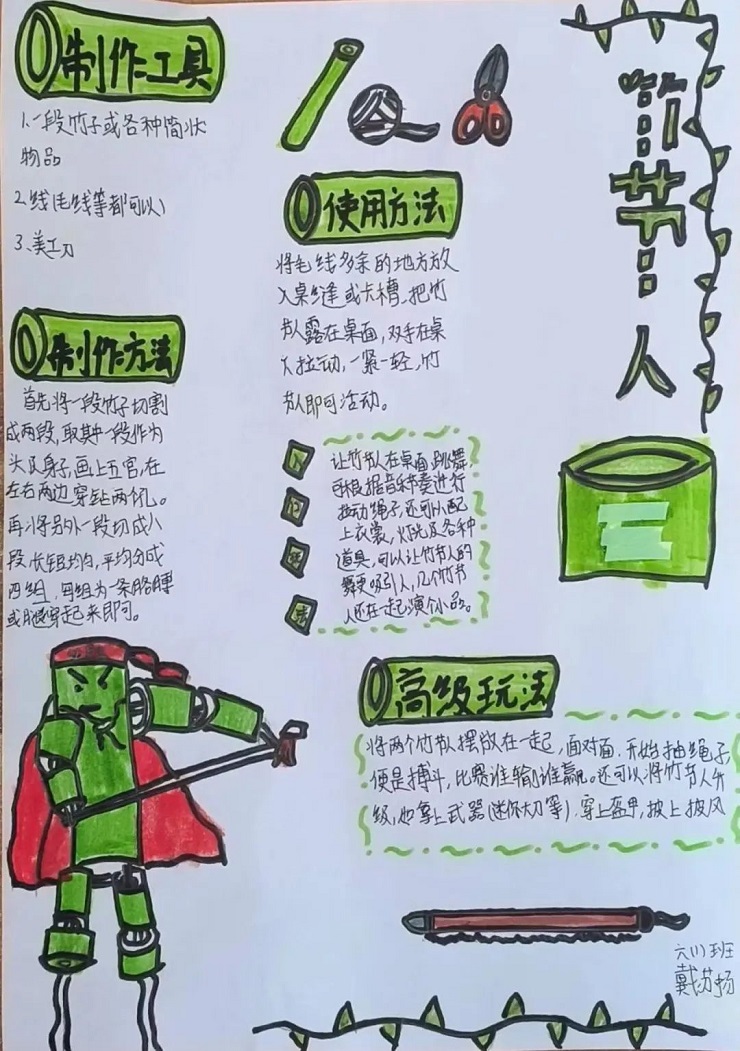 竹节人
制作工具
1.一段竹子或各种筒状
物品
2.线(毛线等都可以)
3.美工刀
使用方法
将毛线多余的地方放
入桌缝或卡槽,把竹
节人露在桌面,双手在桌
下拉动,一紧一轻,竹
节人即可活动。
制作方法
首先将一段竹子切割
成两段,取其中一段作为
头及身子,画上五官,在
左右两边穿钻两个孔。
再将另外一段切成八
段,长短均匀,平均分成
四组,每组为一条胳膊
或腿,穿起来即可。
让竹节人在桌面跳舞,
可根据音乐节奏进行
拉动绳子,还可以配
上衣裳,灯光及各种
道具,可以让竹节人的
舞更吸引人,几个竹节
人还在一起演个小品。
高级玩法
将两个竹节人摆放在一起,面对面,开始抽绳子
便是搏斗,比赛谁输谁赢。还可以将竹节人升
级,也拿上武器(迷你大刀等),穿上盔甲,披上披风
六(1)班
戴苏扬